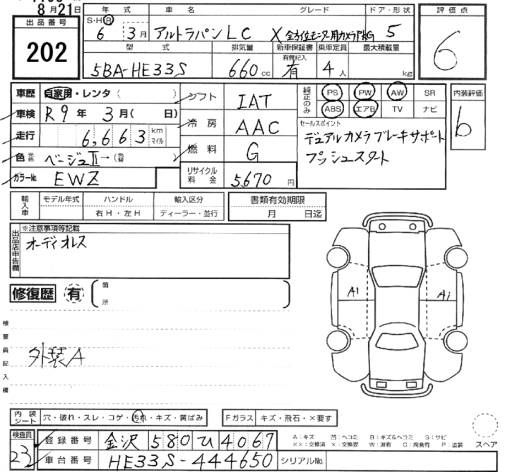 8月21日
出品番号
202
年式 車名 グレード ドア・形状
S・H・R
6 3月 アルトラパンLC X 5
型式 排気量 新車保証書 乗車定員 最大積載量
有償記入
5BA-HE33S 660cc 有 4人 kg
評価点
6
内装評価
b
車歴 自家用・レンタ( )
車検 R9年3月( 日)
走行 6,663 km マイル
色 ベージュⅡ→(
カラーNo. EWZ
シフト IAT
冷房 AAC
燃料 G
リサイクル料金 5,670円
純正のみ PS PW AW SR
ABS エアB TV ナビ
セールスポイント
デュアルカメラブレーキサポート
プッシュスタート
輸入車 モデル年式 ハンドル 輸入区分 書類有効期限
右H・左H ディーラー・並行 月 日迄
出品店申告欄
※注意事項等記載
オーディオレス
修復歴 有 箇所
検査員記入欄
外装A
A1 A1
内装シート 穴・破れ・スレ・コゲ・汚れ・キズ・黄ばみ Fガラス キズ・飛石・×要す
検査員
23
登録番号 金沢 580 ひ 4067
車台番号 HE33S-444650 シリアルNo.
スペア